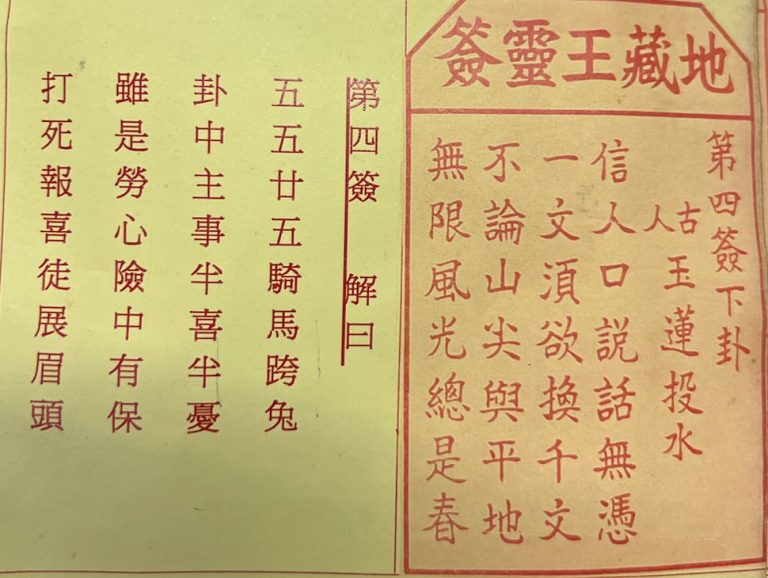 地藏王靈簽
第四簽下卦
古人 玉蓮投水
信人口説話無憑
一文須欲換千文
不論山尖與平地
無限風光總是春
第四簽 解曰
五五廿五騎馬跨兔
卦中主事半喜半憂
雖是勞心險中有保
打死報喜徒展眉頭